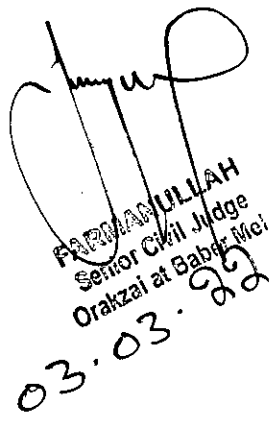 FARMANULLAH
Senior Civil Judge
Orakzai at Baber Mela
03.03.22